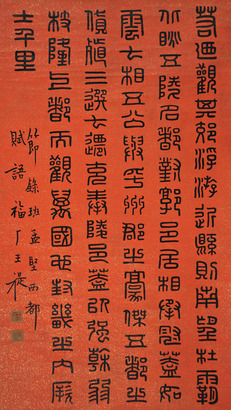 若迺觀其郊浮游近縣則南望杜霸
北眺五陵名都對郭邑居相承冠蓋如
雲七相五公與乎州郡之豪傑五都之
貨殖三選七遷充奉陵邑蓋以強幹弱
枝隆上都而觀萬國也封畿之內厥
土千里
節錄班孟堅西都
賦語福厂王禔